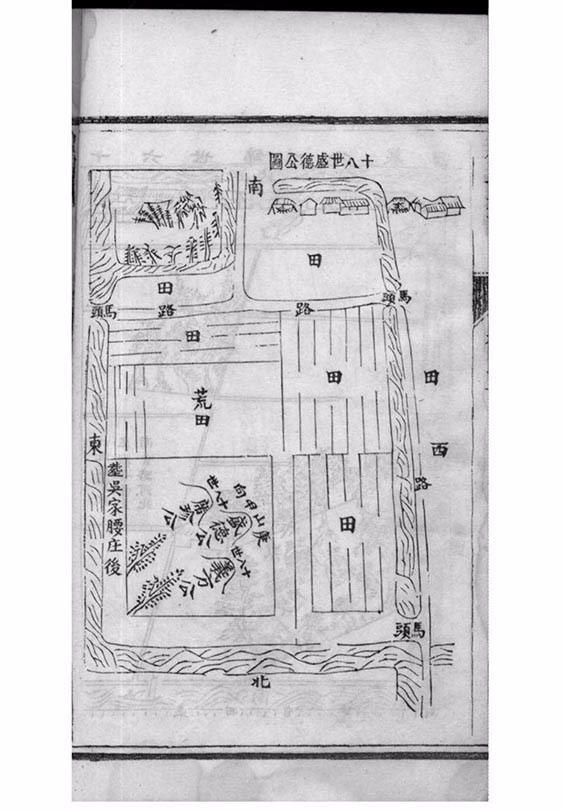 十八世盛德公圖
南
田
田
路
路
馬頭
馬頭
田
田
田
西
路
荒田
東
塟吳家腰庄後
庚山甲向
十八世
盛德公
十八世
席珍公
義方公
田
馬頭
北